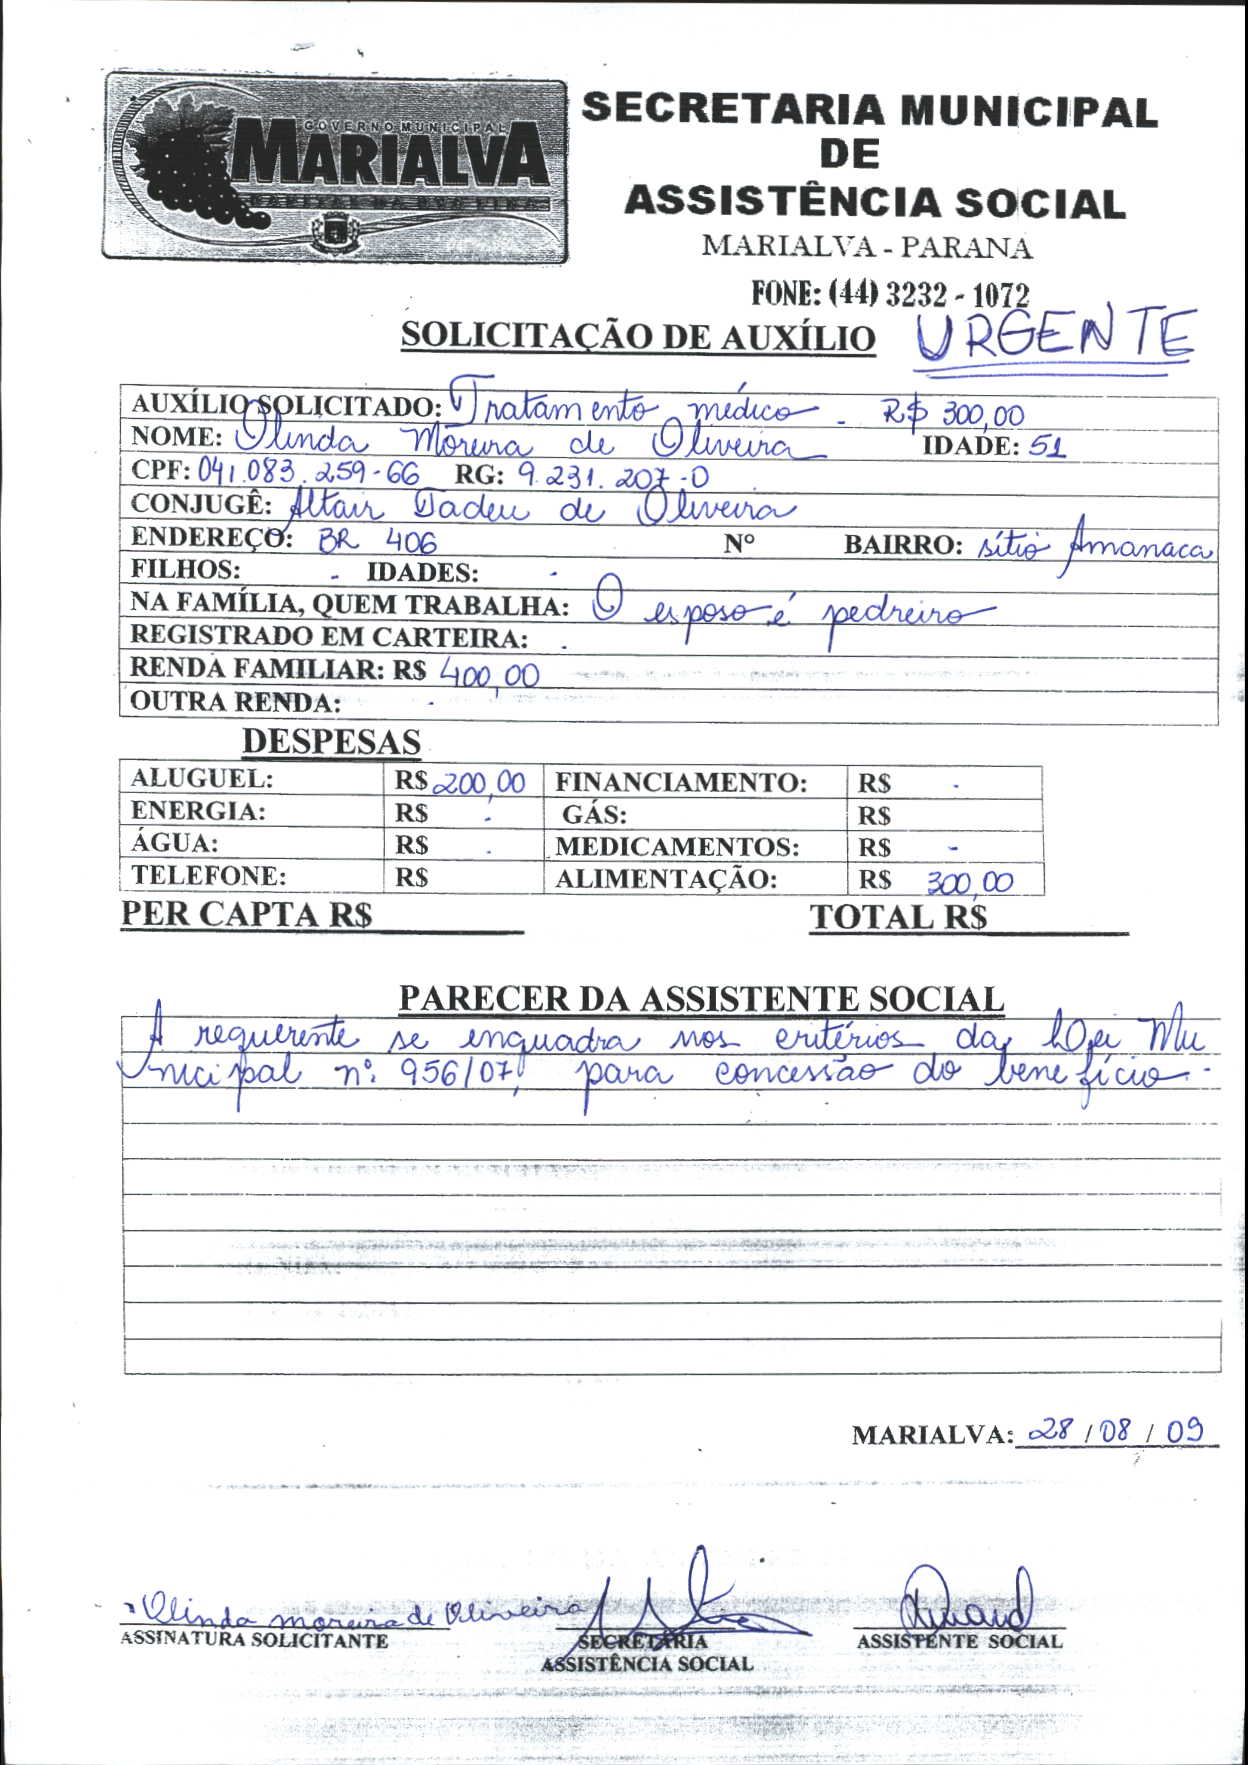 GOVERNO MUNICIPAL
MARIALVA
CAPITAL DA UVA FINA
SECRETARIA MUNICIPAL
DE
ASSISTÊNCIA SOCIAL
MARIALVA - PARANA
FONE: (44) 3232 - 1072
SOLICITAÇÃO DE AUXÍLIO URGENTE
AUXÍLIO SOLICITADO: Tratamento médico - R$ 300,00
NOME: Olinda Moreira de Oliveira IDADE: 51
CPF: 041.083.259-66 RG: 9.231.207-0
CONJUGÊ: Altair Tadeu de Oliveira
ENDEREÇO: BR 406 Nº BAIRRO: sítio Amanaca
FILHOS: - IDADES: -
NA FAMÍLIA, QUEM TRABALHA: O esposo é pedreiro
REGISTRADO EM CARTEIRA: .
RENDA FAMILIAR: R$ 400,00
OUTRA RENDA: -
DESPESAS
ALUGUEL: R$ 200,00 FINANCIAMENTO: R$ -
ENERGIA: R$ - GÁS: R$
ÁGUA: R$ - MEDICAMENTOS: R$ -
TELEFONE: R$ ALIMENTAÇÃO: R$ 300,00
PER CAPTA R$ TOTAL R$
PARECER DA ASSISTENTE SOCIAL
A requerente se enquadra nos critérios da Lei Mu
nicipal nº. 956/07, para concessão do benefício.-
MARIALVA: 28 / 08 / 09
Olinda moreira de Oliveira
ASSINATURA SOLICITANTE SECRETÁRIA ASSISTENTE SOCIAL
ASSISTÊNCIA SOCIAL